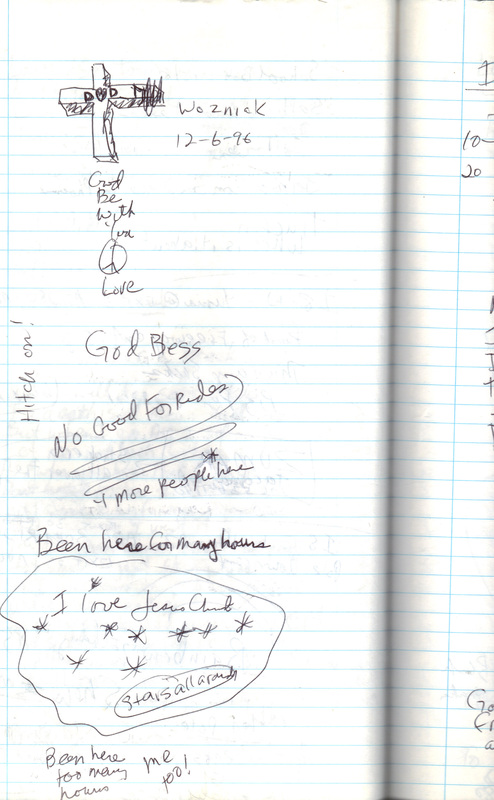 Woznick
12-6-96
God
Be
With
You
Love
Hitch on!
God Bless
No Good For Rides
4 more people here
Been here for many hours
I love Jesus Christ
Stars all around
Been here
too many
hours
me
too!
I
10-
20